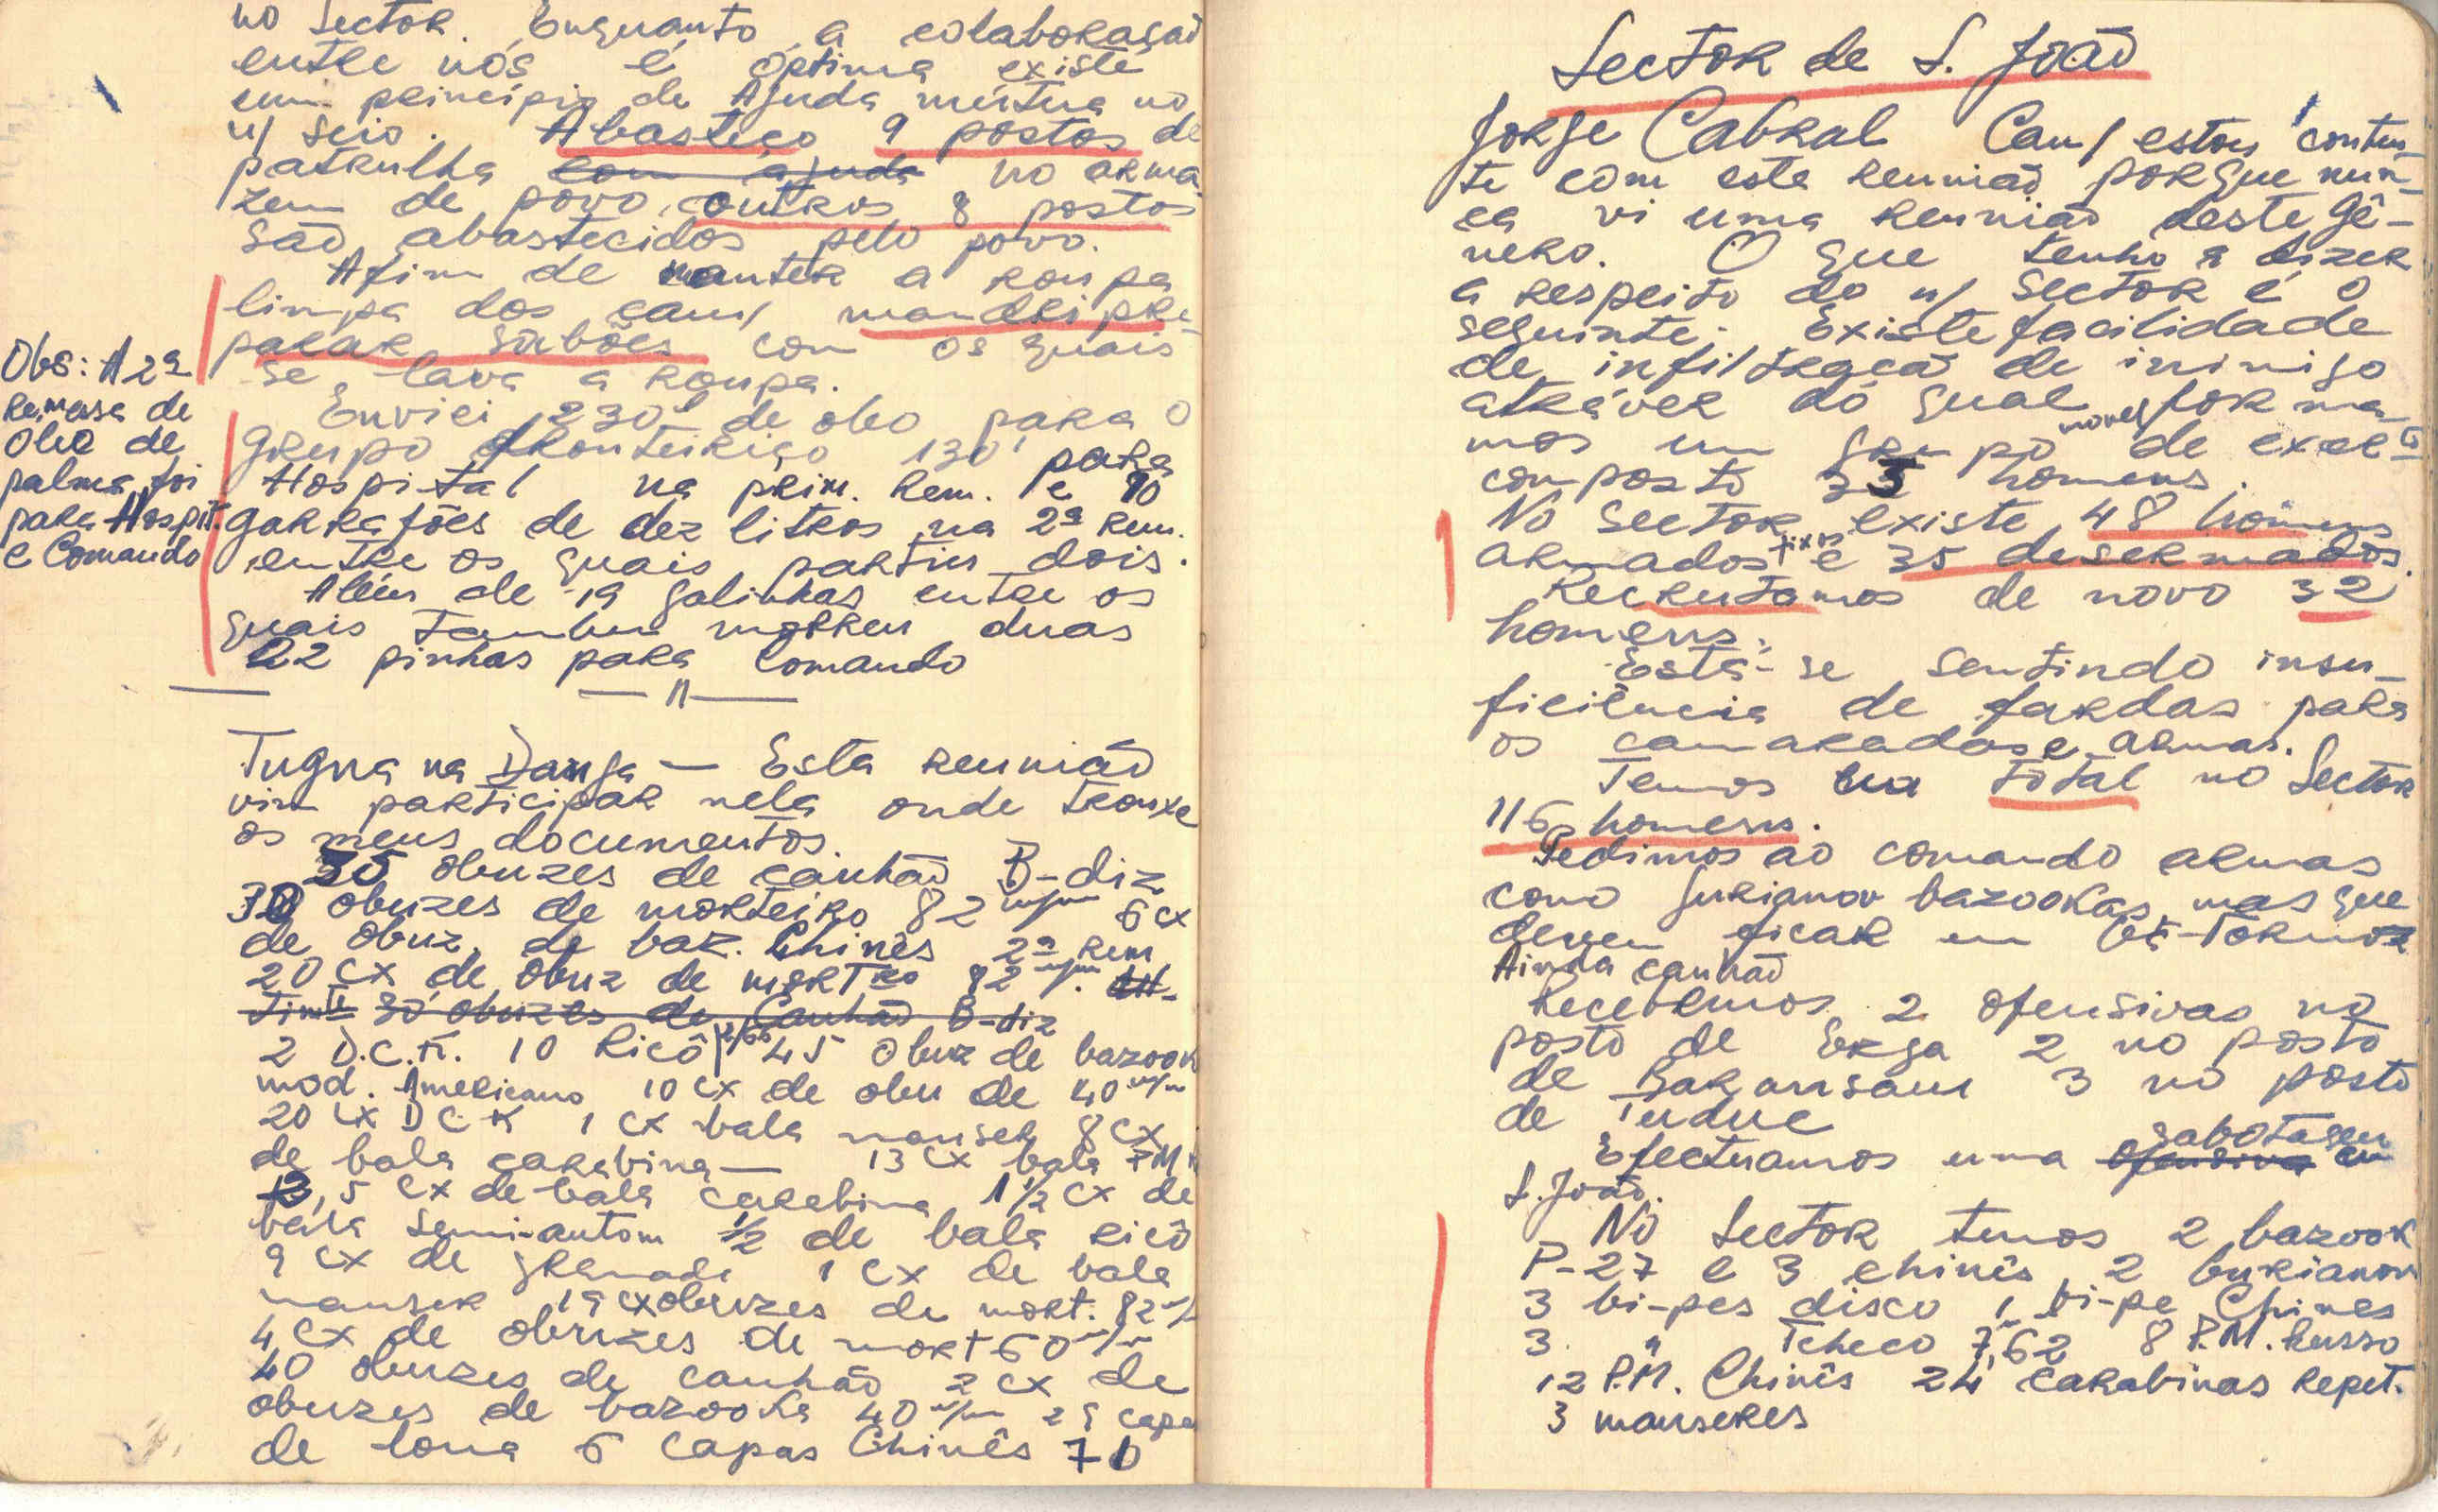 no Sector. Enquanto a colaboração
entre nós é óptima existe
um principio de Ajuda mútua no
n/ seio. Abasteço 9 postos de
patrulha com ajuda no arma
zem de povo, outros 8 postos
são abastecidos pelo povo.
Afim de manter a roupa
limpa dos cam/ mandei pre-
parar sabões com os quais
se lava a roupa.
Enviei 230l de oleo para o
Grupo fronteiriço 130l para
Hospital na prim. Rem. e 10
garrafões de dez litros na 2ª Rem.
entre os quais partiu dois.
Além de 19 galinhas entre os
quais tambem morreu duas
22 pinhas para Comando
Obs: A 2ª
Remessa de
Oleo de
palma foi
para Hospit.
e Comando
— " —
Tugna na Danfa — Esta reunião
vim participar nela onde trouxe
os meus documentos.
35 obuzes de canhão B-diz
30 obuzes de morteiro 82 m/m 6 cx
de obuz de baz. Chinês 2ª Rem
20 cx de obuz de mortro 82 m/m.
30 obuzes de Canhão B-diz
2 D.C.K. 10 Ricô 45 obuz de bazook
mod. Americano 10 cx de obu de 40 m/m
20 cx D C K 1 cx bala mauser 8 cx
de bala carabina — 13 cx bala PM
,5 cx de bala carabina 1 1/2 cx de
bala semi-autom 1/2 de bala ricô
9 cx de granade 1 cx de bala
mauser 19 cx obuzes de mort. 82 m/
4 cx de obuzes de mort 60 m/m
40 obuzes de canhão 2 cx de
obuzes de bazooka 40 m/m 29 capa
de lona 6 capas Chinês 70
Sector de S. João
Jorge Cabral Cam/ estou conten-
te com esta reunião porque nun-
ca vi uma reunião deste gê-
nero. O que tenho a dizer
a respeito do n/ Sector é o
seguinte: Existe facilidade
de infiltração de inimigo
atráver do qual forma-
mos um grupo movel de exerto
composto 33 homens.
No Sector existe 48 homens
armados fixos e 35 desarmados.
Recrutamos de novo 32
homens.
Está-se sentindo insu-
ficiência de fardas para
os camaradas e armas.
Temos na total no Sector
116 homens.
Pedimos ao comando armas
como gurianov bazookas mas que
devem ficar em
Ainda canhão
Recebemos 2 ofensivas no
posto de Erga 2 no posto
de 3 no posto
de
Efectuamos uma ofensiva sabotagem em
S. João.
No Sector temos 2 bazook
P-27 e 3 chinês 2 gurianov
3 bi-pes disco 1 bi-pe Chines
3 " Tcheco 7,62 8 P.M. Russo
12 P.M. Chinês 24 carabinas Repet.
3 mauseres